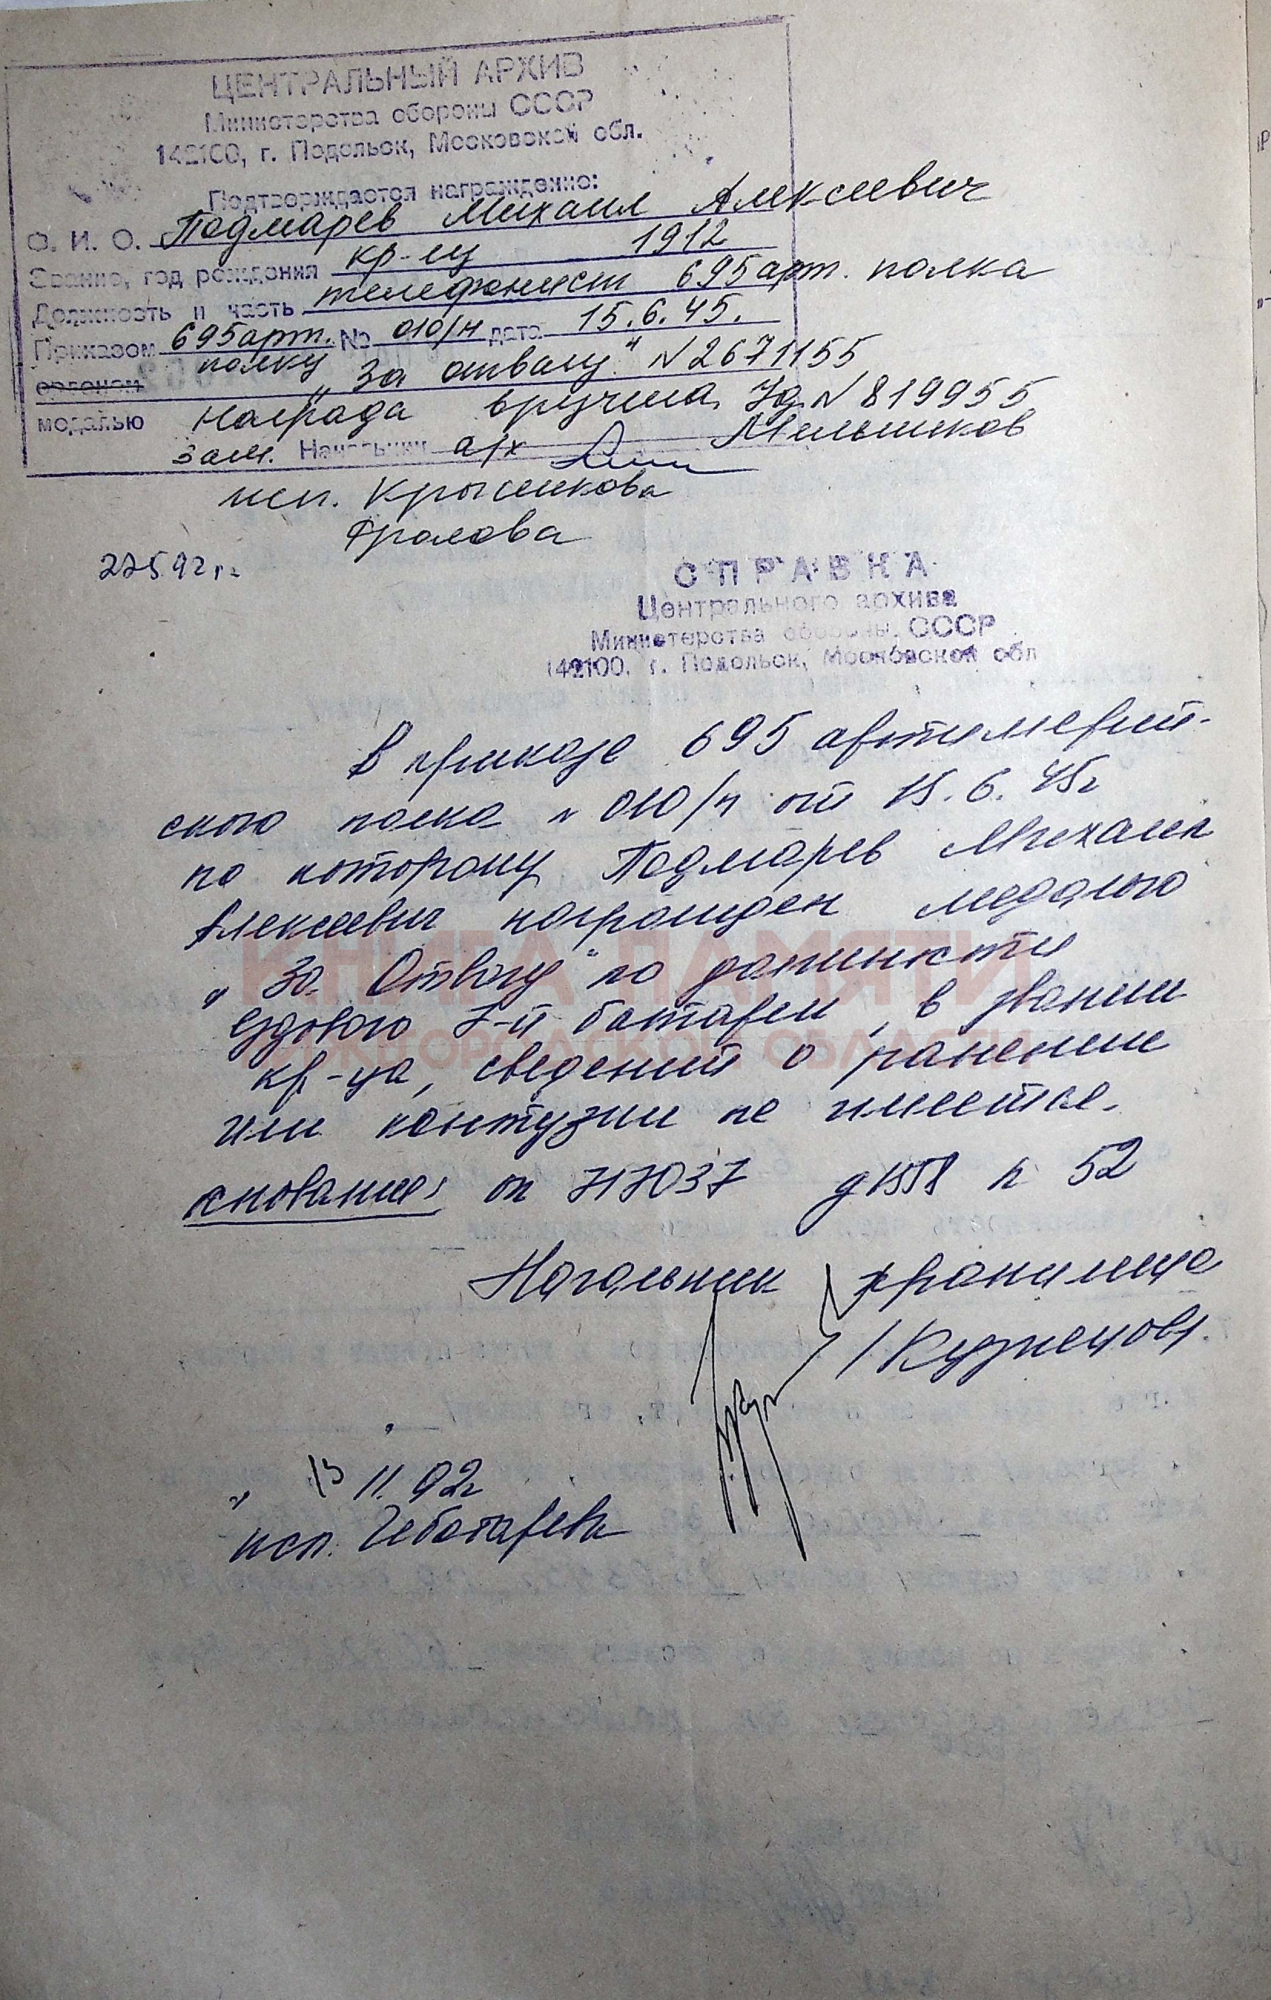 ЦЕНТРАЛЬНЫЙ АРХИВ
Министерства обороны СССР
142100, г. Подольск, Московской обл.
Подтверждается награждение:
Ф. И. О. Подмарев Михаил Алексеевич
Звание, год рождения кр-ец 1912
Должность и часть телефонист 695 арт. полка
Приказом 695 арт. № 010/н дата 15.6.45.
полку
орденом „За отвагу" N 2671155
медалью Награда вручена, Уд. N 819955
Зам. Начальник а/х Мельников
исп. Крысикова
Фролова
22 5 92 г.
СПРАВКА
Центрального архива
Министерства обороны СССР
142100, г. Подольск, Московской обл
В приказе 695 артиллерий-
ского полка N 010/н от 15.6.45г
по которому Подмарев Михаил
Алексеевич награжден медалью
„За Отвагу" по должности
ездового 7-й батареи, в звании
кр-ца, сведений о ранении
или контузии не имеется.
КНИГА ПАМЯТИ
НИЖЕГОРОДСКОЙ ОБЛАСТИ
основание: оп 717037 д 1558 л 52
Начальник хранилища
/Кузнецов/
" 13 11.92г
исп. Чеботарева